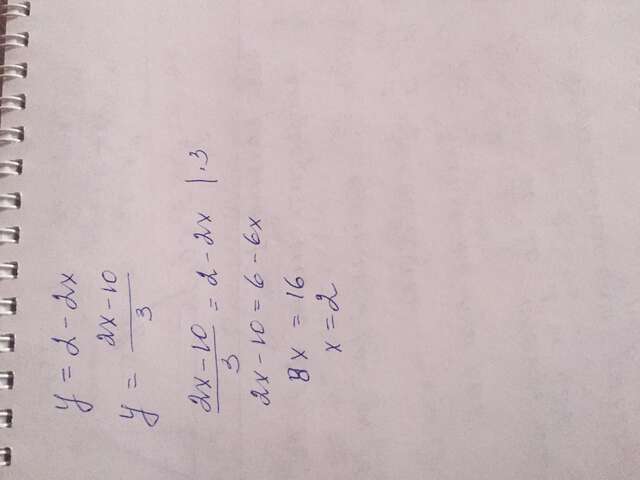 y = 2 - 2x
y = \frac{2x - 10}{3}
\frac{2x - 10}{3} = 2 - 2x | · 3
2x - 10 = 6 - 6x
8x = 16
x = 2